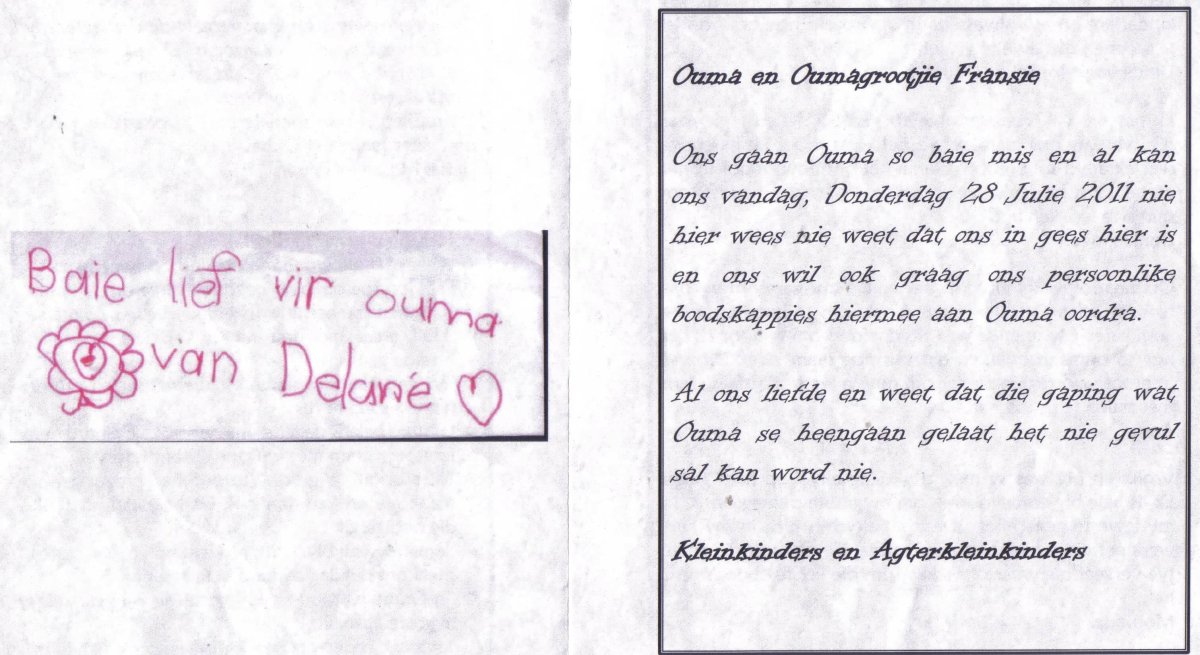 Baie lief vir ouma
van Delané
Ouma en Oumagrootjie Fransie
Ons gaan Ouma so baie mis en al kan
ons vandag, Donderdag 28 Julie 2011 nie
hier wees nie weet dat ons in gees hier is
en ons wil ook graag ons persoonlike
boodskappies hiermee aan Ouma oordra.
Al ons liefde en weet dat die gaping wat
Ouma se heengaan gelaat het nie gevul
sal kan word nie.
Kleinkinders en Agterkleinkinders